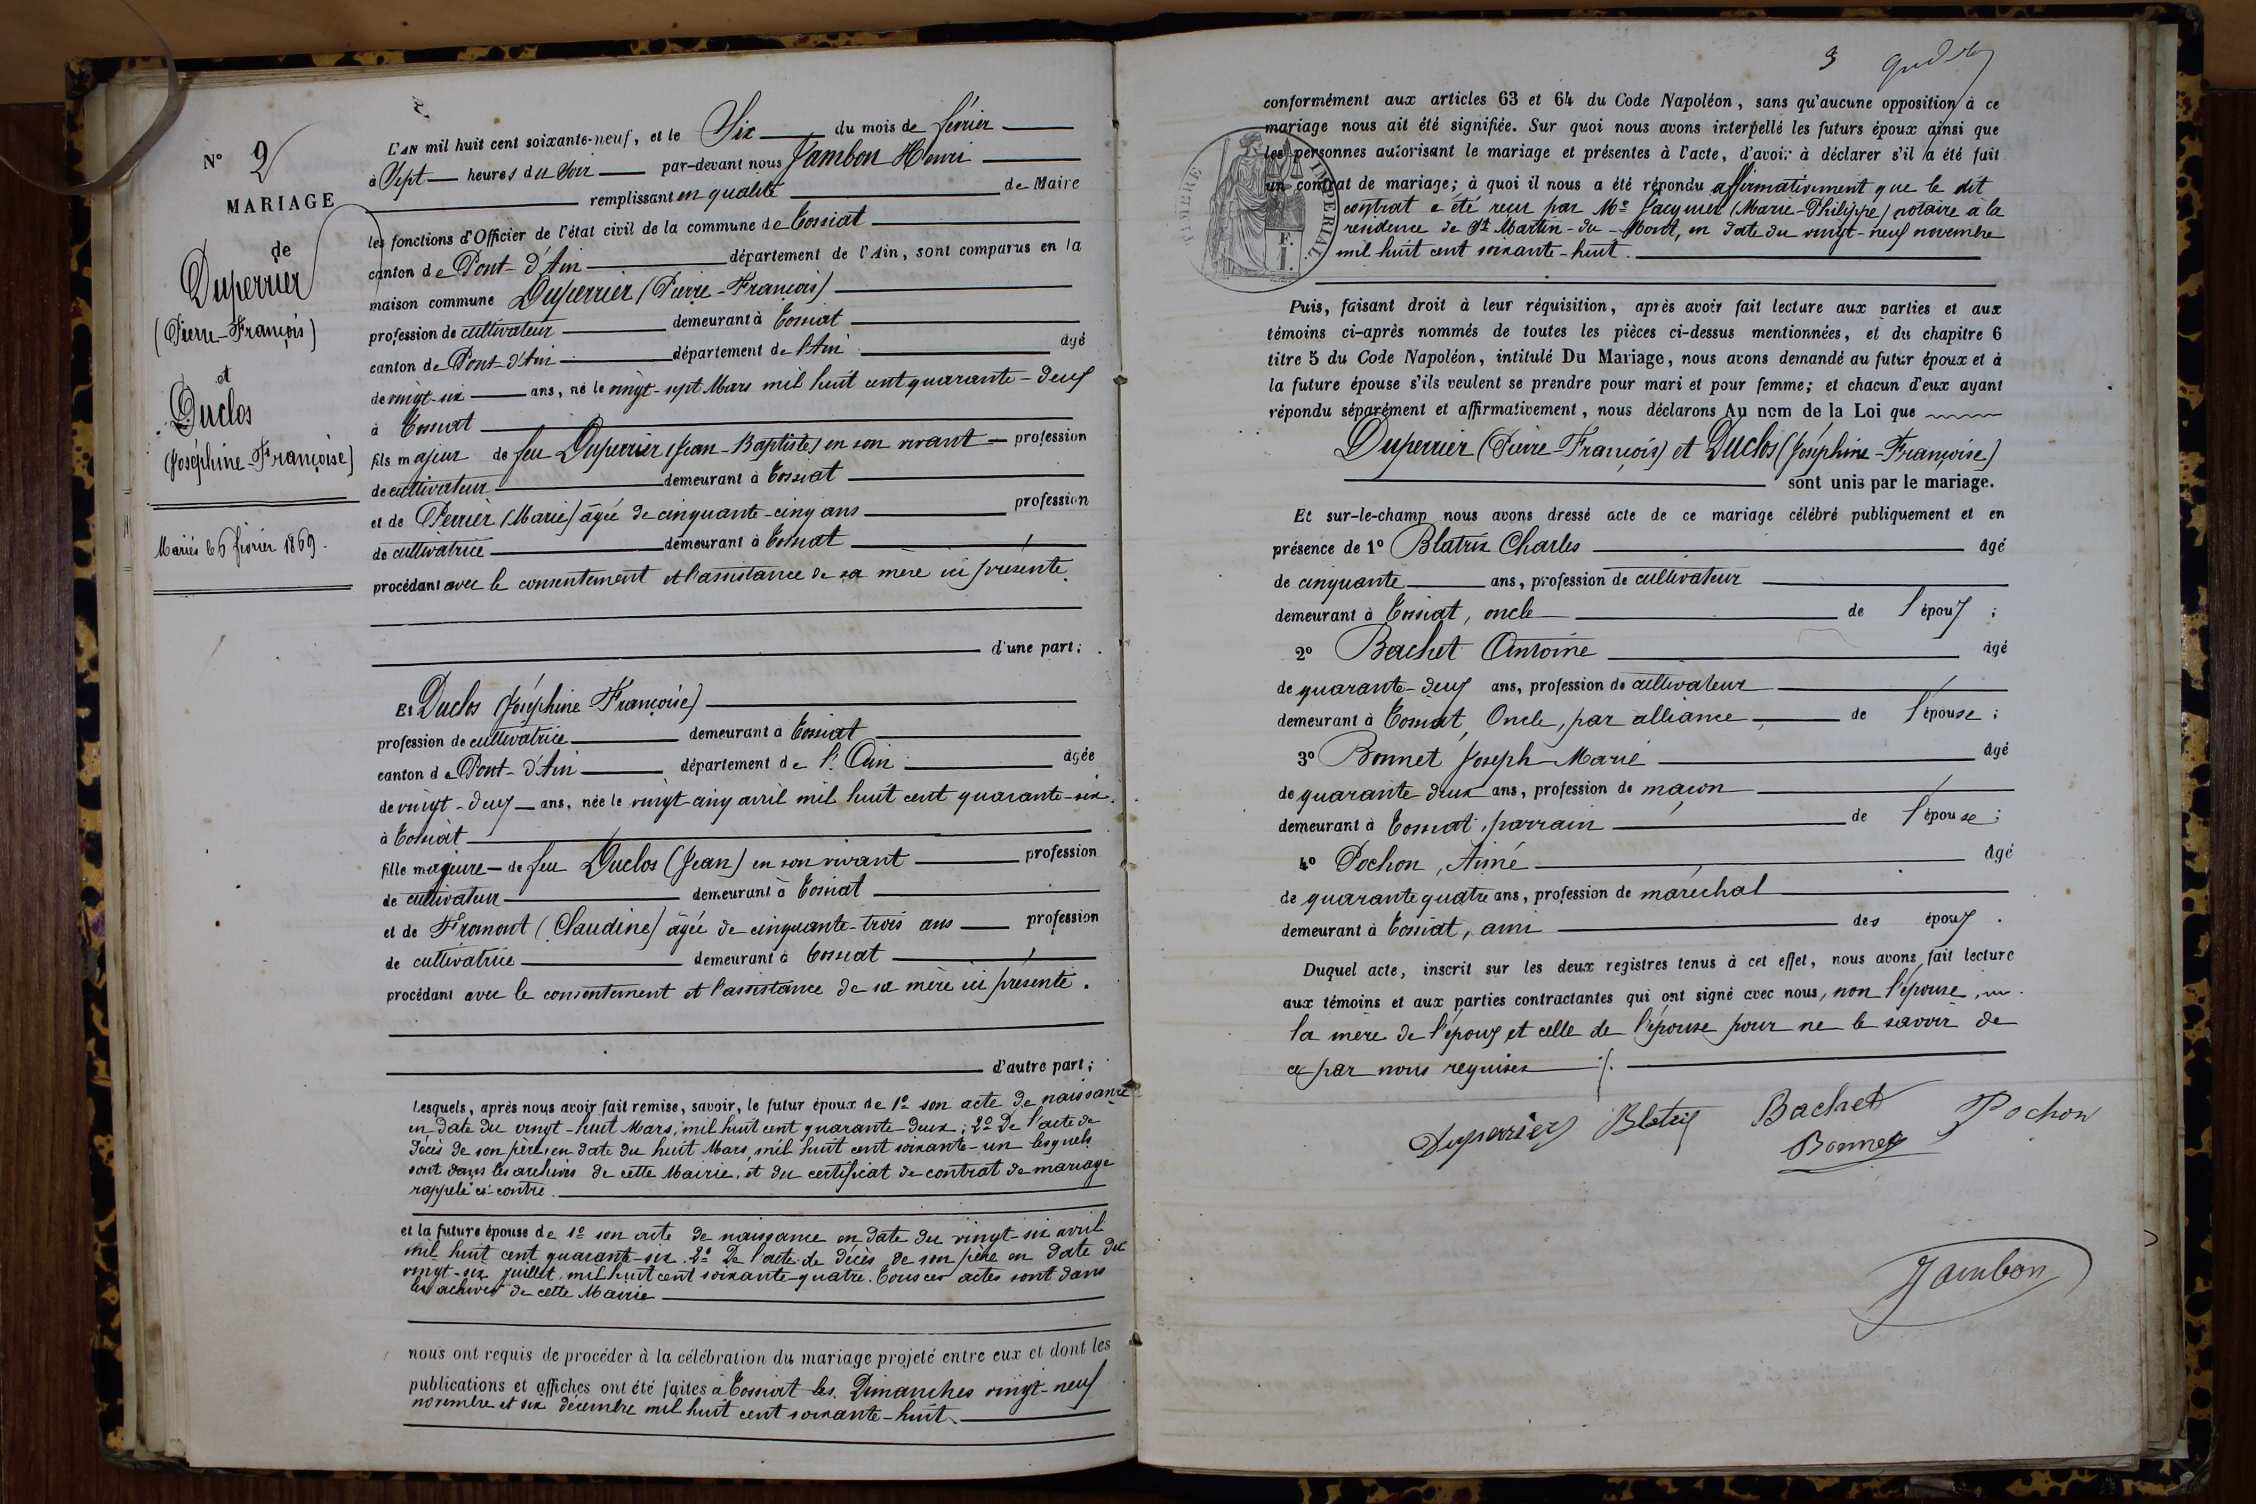 N° 2
MARIAGE
de
Duperrier
(Pierre-François)
et
Duclos
(Joséphine-Françoise)
Mariés le 6 février 1869.
L'AN mil huit cent soixante-neuf, et le Six du mois de février
à Sept heures du soir par-devant nous Jambon Henri
remplissant en qualité de Maire
les fonctions d'Officier de l'état civil de la commune de Tossiat
canton de Pont-d'Ain département de l'Ain, sont comparus en la
maison commune Duperrier (Pierre-François)
profession de cultivateur demeurant à Tossiat
canton de Pont-d'Ain département de l'Ain âgé
de vingt-six ans, né le vingt-sept Mars mil huit cent quarante-deux
à Tossiat
fils majeur de feu Duperrier (Jean-Baptiste) en son vivant profession
de cultivateur demeurant à Tossiat
et de Perrier (Marie) âgée de cinquante-cinq ans profession
de cultivatrice demeurant à Tossiat
procédant avec le consentement et l'assistance de sa mère ici présente.
d'une part;
Et Duclos (Joséphine-Françoise)
profession de cultivatrice demeurant à Tossiat
canton de Pont-d'Ain département de l'Ain âgée
de vingt-deux ans, née le vingt-cinq avril mil huit cent quarante-six.
à Tossiat
fille majeure de feu Duclos (Jean) en son vivant profession
de cultivateur demeurant à Tossiat
et de Fromont (Claudine) âgée de cinquante-trois ans profession
de cultivatrice demeurant à Tossiat
procédant avec le consentement et l'assistance de sa mère ici présente.
d'autre part;
Lesquels, après nous avoir fait remise, savoir, le futur époux de 1° son acte de naissance
en date du vingt-huit Mars, mil huit cent quarante-deux; 2° De l'acte de
décès de son père, en date du huit Mars, mil huit cent soixante-un lesquels
sont dans les archives de cette Mairie, et du certificat de contrat de mariage
rappelé ci-contre.
et la future épouse de 1° son acte de naissance en date du vingt-six avril
mil huit cent quarante-six. 2° De l'acte de décès de son père en date du
vingt-six juillet mil huit cent soixante-quatre. Tous ces actes sont dans
les achives de cette Mairie
nous ont requis de procéder à la célébration du mariage projeté entre eux et dont les
publications et affiches ont été faites à Tossiat les Dimanches vingt-neuf
novembre et six décembre mil huit cent soixante-huit.
3
conformément aux articles 63 et 64 du Code Napoléon, sans qu'aucune opposition à ce
mariage nous ait été signifiée. Sur quoi nous avons interpellé les futurs époux ainsi que
les personnes autorisant le mariage et présentes à l'acte, d'avoir à déclarer s'il a été fait
un contrat de mariage; à quoi il nous a été répondu affirmativement que le dit
contrat a été reçu par Me Jacquet (Marie-Philippe) notaire à la
résidence de St Martin-du-Mont, en date du vingt-neuf novembre
mil huit cent soixante-huit.
TIMBRE IMPERIAL.
F.
1.
Puis, faisant droit à leur réquisition, après avoir fait lecture aux parties et aux
témoins ci-après nommés de toutes les pièces ci-dessus mentionnées, et du chapitre 6
titre 5 du Code Napoléon, intitulé Du Mariage, nous avons demandé au futur époux et à
la future épouse s'ils veulent se prendre pour mari et pour femme; et chacun d'eux ayant
répondu séparément et affirmativement, nous déclarons Au nom de la Loi que
Duperrier (Pierre-François) et Duclos (Joséphine-Françoise)
sont unis par le mariage.
Et sur-le-champ nous avons dressé acte de ce mariage célébré publiquement et en
présence de 1° Blatrix Charles âgé
de cinquante ans, profession de cultivateur
demeurant à Tossiat, oncle de l'époux;
2° Bachet Antoine âgé
de quarante-deux ans, profession de cultivateur
demeurant à Tossiat, Oncle, par alliance, de l'épouse;
3° Bonnet Joseph-Marie âgé
de quarante deux ans, profession de maçon
demeurant à Tossiat, parrain de l'épouse;
4° Pochon, Aimé âgé
de quarante quatre ans, profession de maréchal
demeurant à Tossiat, ami des époux.
Duquel acte, inscrit sur les deux registres tenus à cet effet, nous avons fait lecture
aux témoins et aux parties contractantes qui ont signé avec nous, non l'épouse,
la mère de l'époux et celle de l'épouse pour ne le savoir de
ce par nous requises ./.
Duperrier Blatrix Bachet Pochon
Bonnet
Jambon